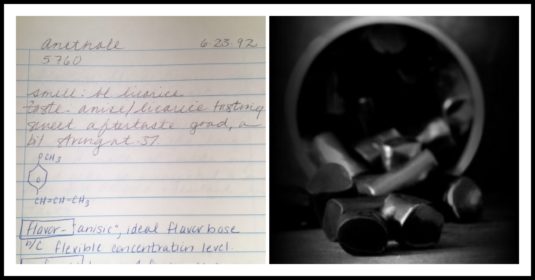 Anethole 6-23-92
5760
smell: bl licorice
taste - anise/licorice tasting
sweet aftertaste good, a
bit stringent. 5%
OCH3
CH=CH-CH3
Flavor - "anisic", ideal flavor base
b/c flexible concentration level